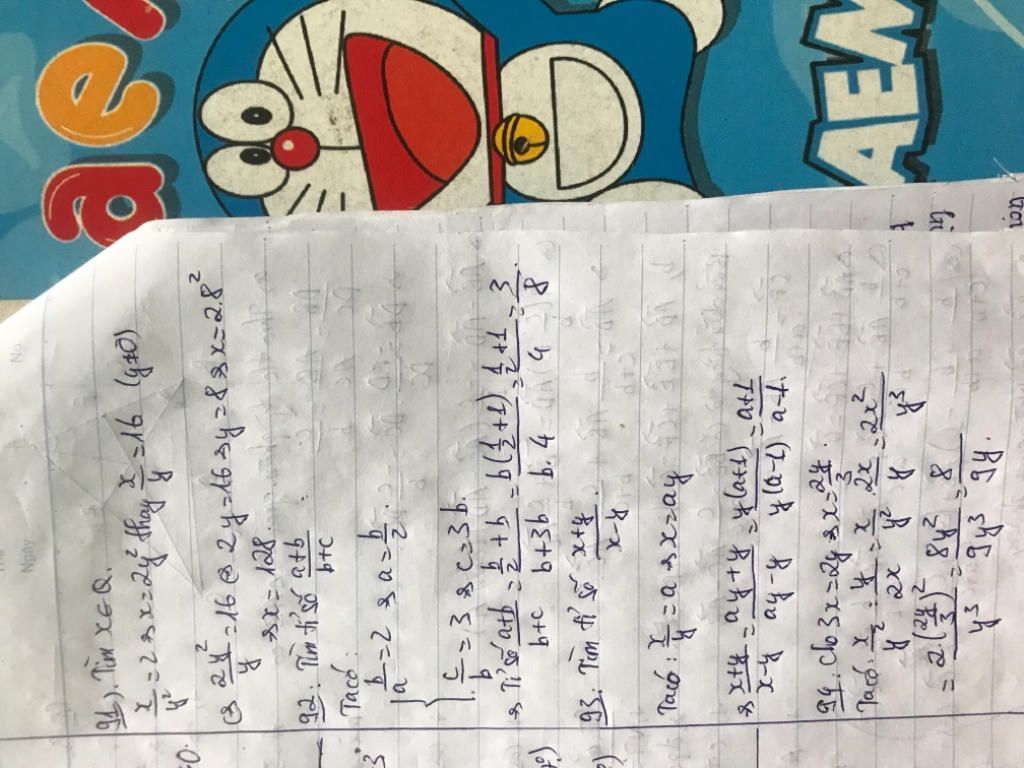 ae
AEM
No.
Ngày
91). Tìm x∈Q.
x/y² = 2 → x = 2y² thay x/y = 16 (y≠0)
⇔ 2y²/y = 16 ⇔ 2y = 16 → y = 8 → x = 2.8²
→ x = 128.
92: Tìm tỉ số a+b/b+c
Ta có:
b/a = 2 → a = b/2
c/b = 3 → c = 3b.
→ Tỉ số a+b/b+c = b/2 + b/b+3b = b(1/2+1)/b.4 = 1/2+1/4 = 3/8.
93: Tìm tỉ số x+y/x-y.
Ta có: x/y = a → x = ay
→ x+y/x-y = ay+y/ay-y = y(a+1)/y(a-1) = a+1/a-1.
94: Cho 3x = 2y → x = 2y/3.
Ta có: x/y² : y/2x = x/y² . 2x/y = 2x²/y³
= 2.(2y/3)²/y³ = 8y²/9y³ = 8/9y.